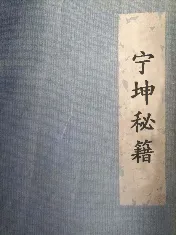 宁坤秘籍